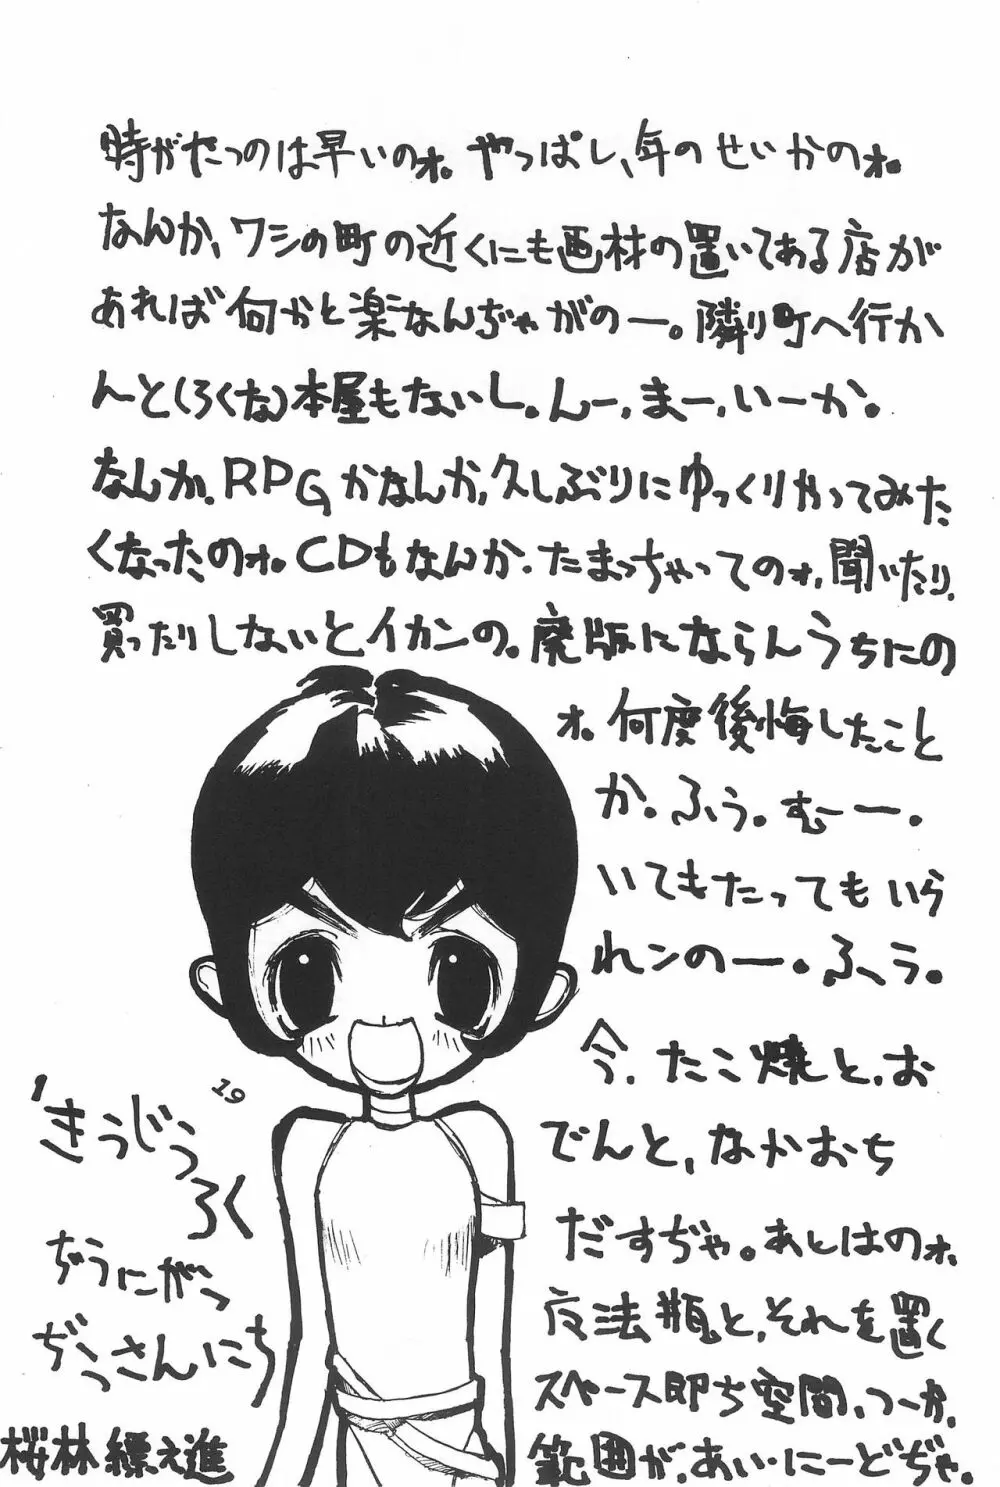 時がたつのは早いのォ。やっぱし、年のせいかのォ。
なんか、ワシの町の近くにも画材の置いてある店が
あれば何かと楽なんぢゃがのー。隣り町へ行か
んと(ろくな)本屋もないし。んー、まー、いーか。
なんか、RPGかなんか、久しぶりにゆっくりやってみた
くなったのォ。CDもなんか、たまっちゃってのォ、聞いたり、
買ったりしないとイカンの。廃版にならんうちにの
ォ。何度後悔したこと
か。ふぅ。むーー。
いてもたってもいら
れンのー。ふぅ。
今、たこ焼と、お
でんと、なかおち
だすぢゃ。あとはのォ、
魔法瓶と、それを置く
スペース即ち空間、つーか、
範囲が、あい・にーどぢゃ。
19
'きうじぅ
ろく
ぢうにがつ
ぢうさんにち
桜林
進